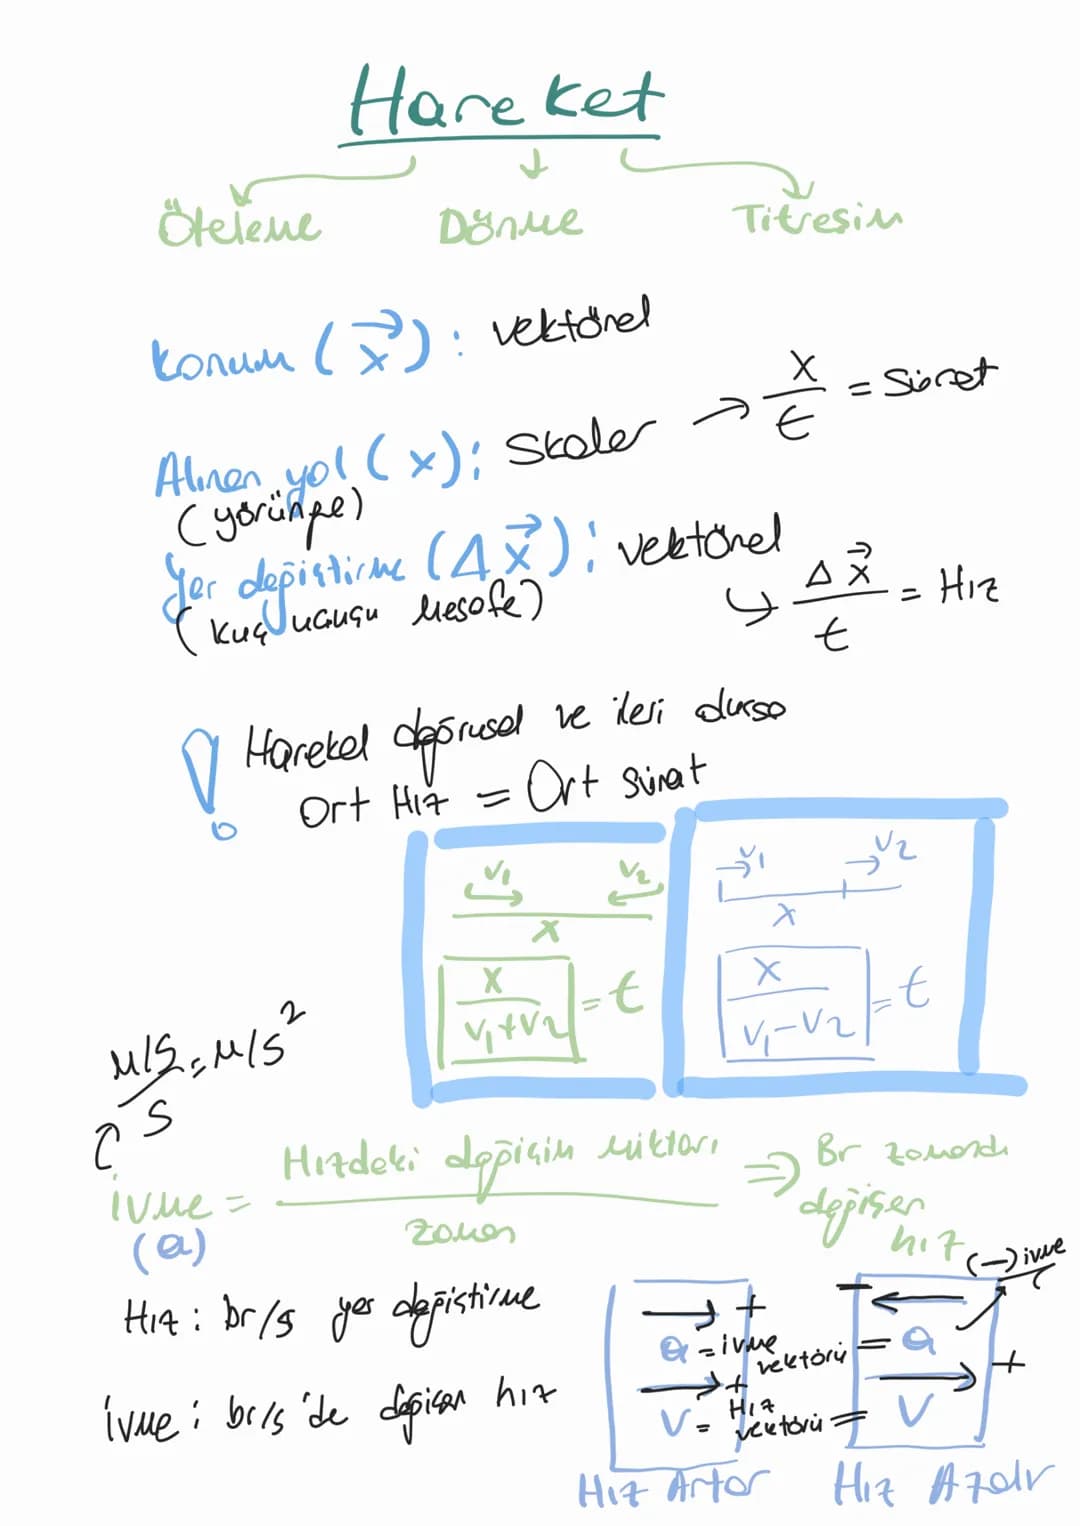 Hareket
Öteleme Dönme Titreşim
Konum (x⃗): vektörel
Alınan yol (x): Skaler → x/t = Sürat
(yörünge)
Yer değiştirme (Δx⃗): vektörel
(kuş uçuşu mesafe)
↳ Δx⃗/t = Hız
! Hareket doğrusal ve ileri olursa
Ort Hız = Ort Sürat
V1 V2
x
x/(V1+V2) = t
V1 V2
x
x/(V1-V2) = t
M/S/S = M/S²
ivme = Hızdeki değişim miktarı / zaman ⇒ Br zamanda
değişen
hız
(a)
Hız: br/s yer değiştirme
ivme: br/s'de değişen hız
+
a = ivme vektörü = a
+
V = Hız vektörü = V
Hız Artar
− (−) ivme
+
Hız Azalır